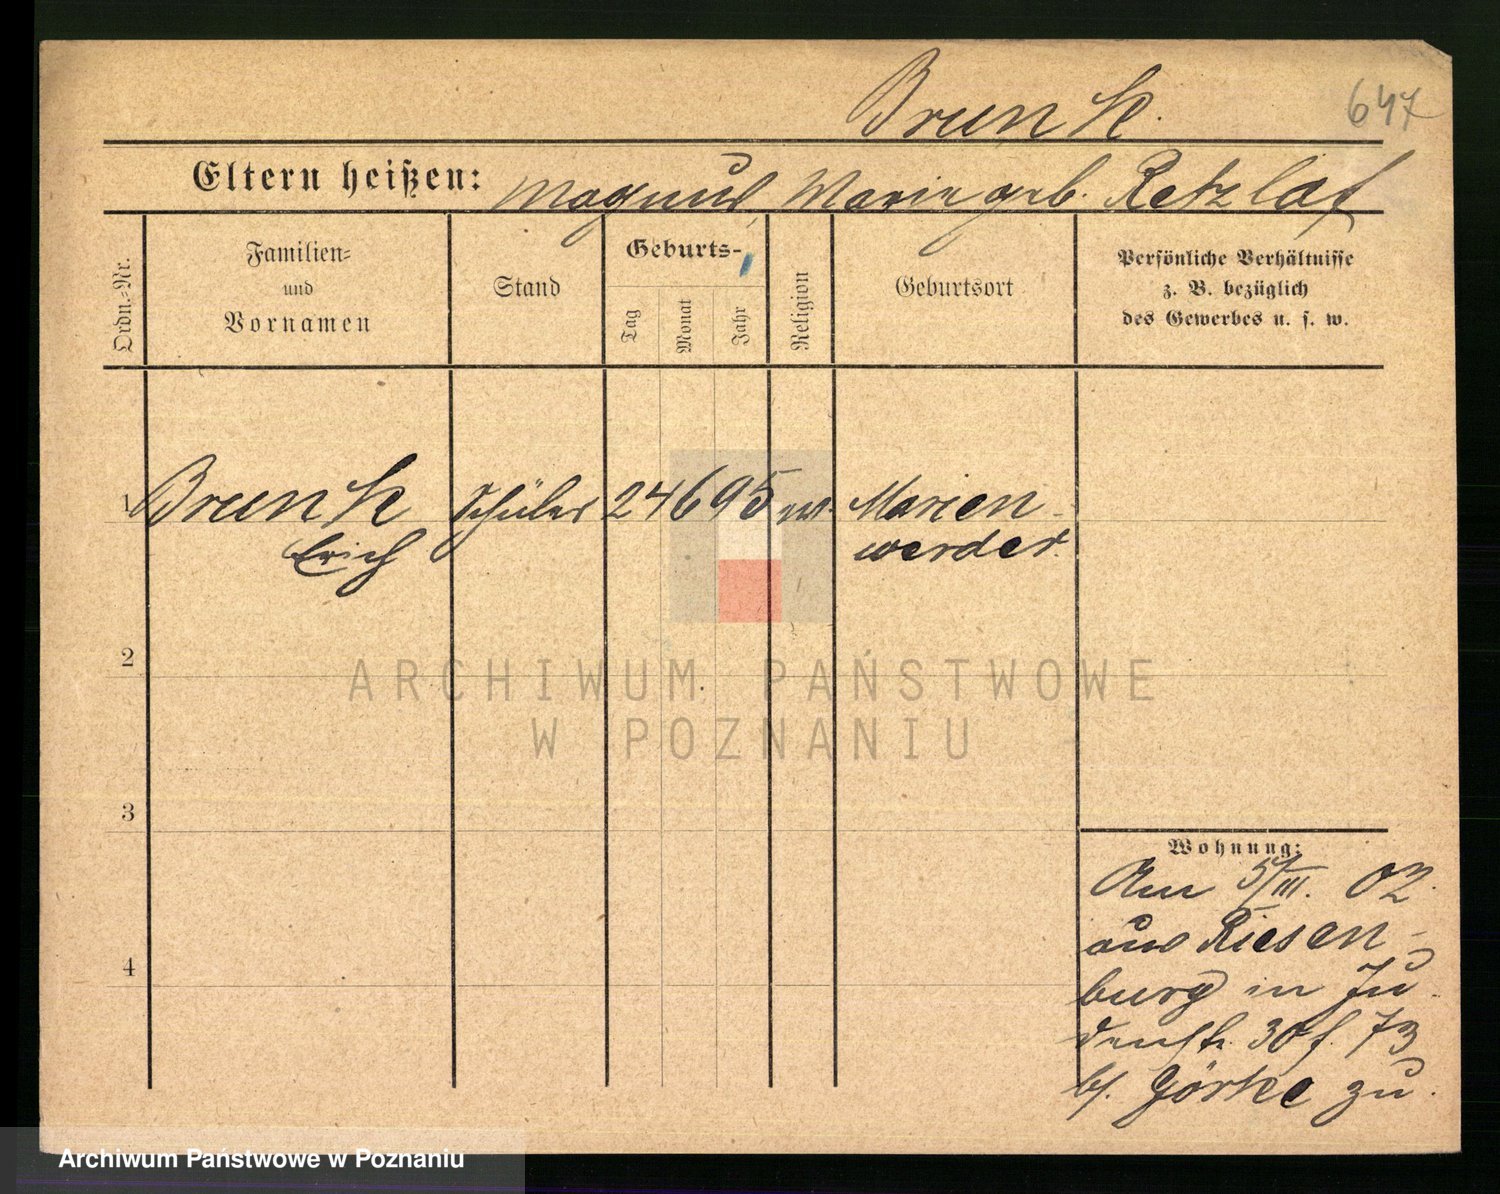 Brunk.
647
Eltern heißen: Magnus, Marie geb. Retzlaf
Ordn.-Nr.
Familien-
und
Vornamen
Stand
Geburts-
Tag
Monat
Jahr
Religion
Geburtsort
Persönliche Verhältnisse
z. B. bezüglich
des Gewerbes u. s. w.
1 Brunk Schüler 24 6 95 ev. Marien-
Erich werder.
2
3
4
Wohnung:
Am 5/III. 02.
aus Riesen-
burg in Ju-
denstr. 30
b/. Görke zu.
ARCHIWUM PAŃSTWOWE
W POZNANIU
Archiwum Państwowe w Poznaniu